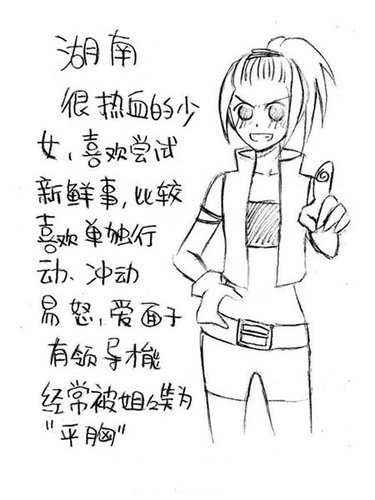 湖南
很热血的少
女、喜欢尝试
新鲜事,比较
喜欢单独行
动、冲动
易怒、爱面子
有领导才能
经常被姐姐笑为
"平胸"